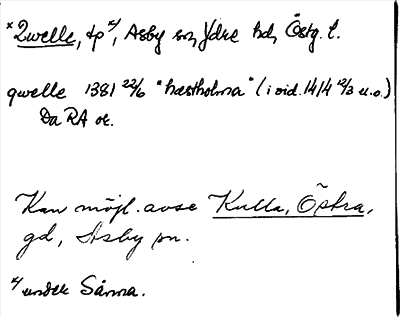 × Qvelle, tp x/, Asby sn, Ydre hd, Östg. l.
qwelle 1381 22/6 "hæstholma" (i vid. 1414 12/3 u.o.)
Da RA or.
Kan möjl. avse Kulla, Östra,
gd, Asby sn.
x/ under Sånna.